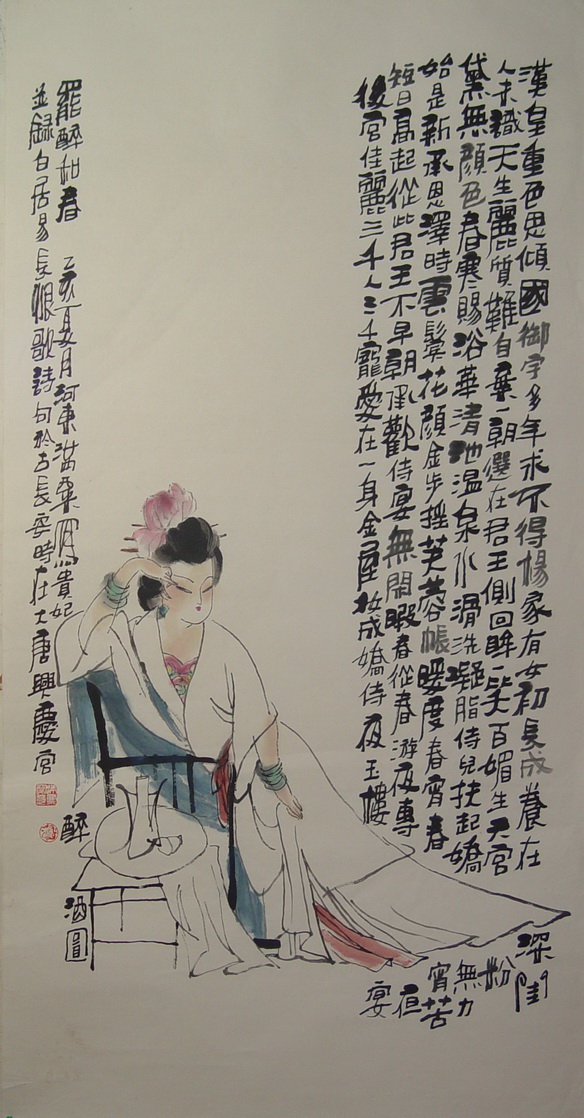 漢皇重色思傾國御宇多年求不得楊家有女初長成養在深閨
人未識天生麗質難自棄一朝選在君王側回眸一笑百媚生六宮粉
黛無顏色春寒賜浴華清池溫泉水滑洗凝脂侍兒扶起嬌無力
始是新承恩澤時雲鬢花顏金步搖芙蓉帳暖度春宵春宵苦
短日高起從此君王不早朝承歡侍宴無閒暇春從春游夜專夜
後宮佳麗三千人三千寵愛在一身金屋妝成嬌侍夜玉樓宴
罷醉和春 乙亥夏月河東滿寫貴妃醉酒圖
並錄白居易長恨歌詩句於古長安時在大唐興慶宮